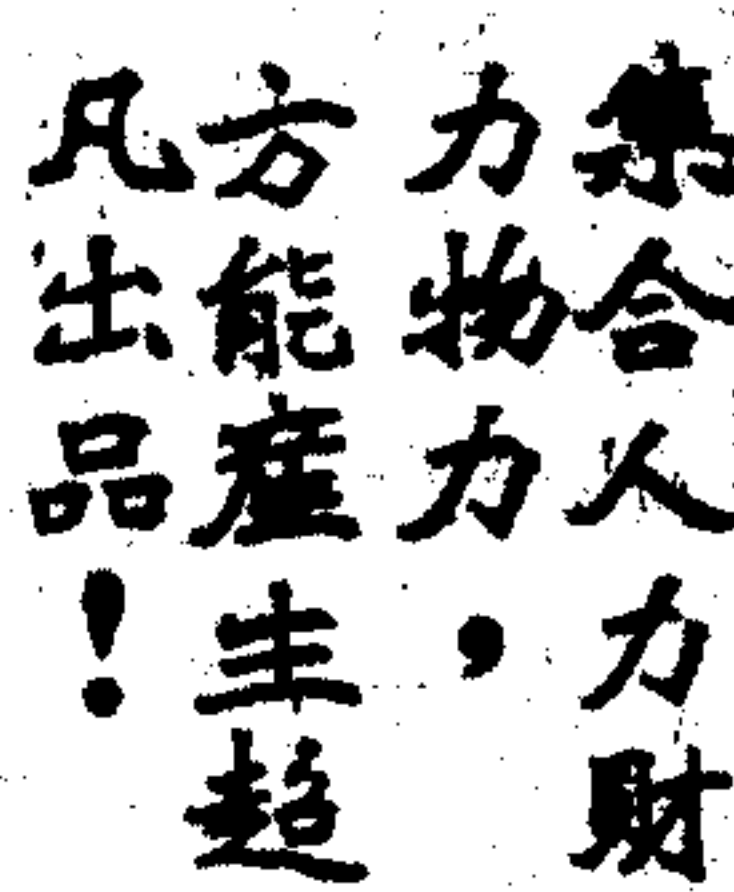 集合人力財
力物力，
方能產生超
凡出品！